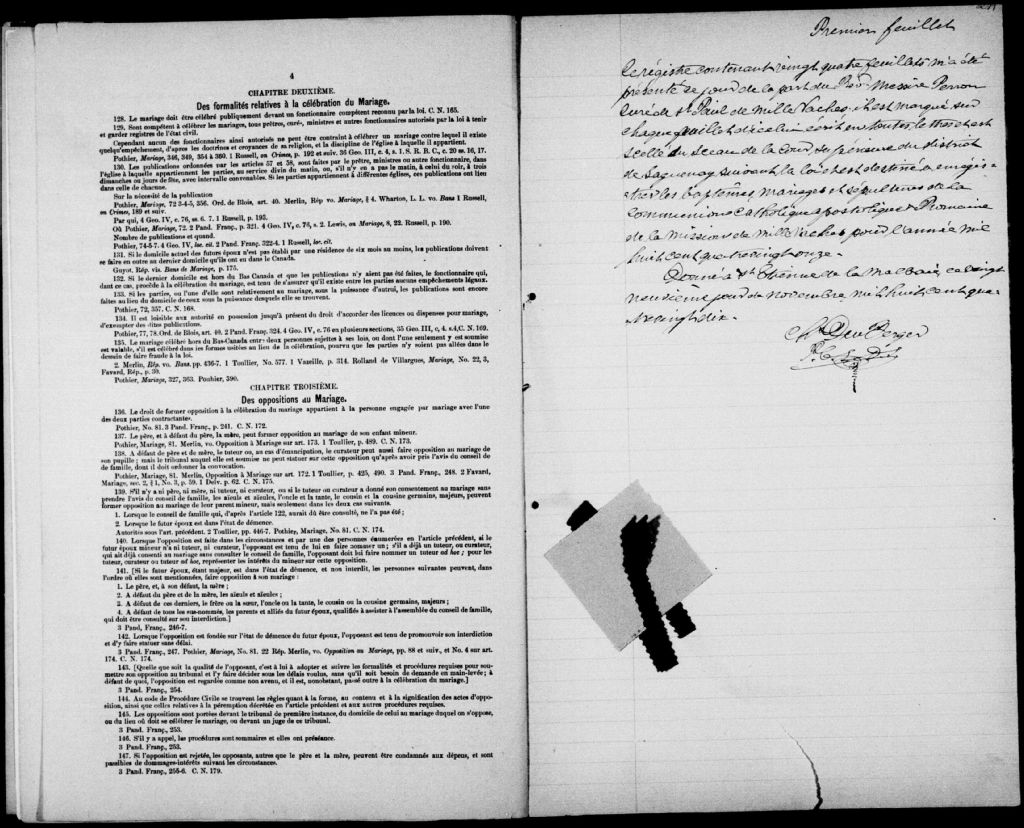 4
CHAPITRE DEUXIÈME.
Des formalités relatives à la célébration du Mariage.
128. Le mariage doit être célébré publiquement devant un fonctionnaire compétent reconnu par la loi. C. N. 165.
129. Sont compétents à célébrer les mariages, tous prêtres, curés, ministres et autres fonctionnaires autorisés par la loi à tenir
et garder registres de l'état civil.
Cependant aucun des fonctionnaires ainsi autorisés ne peut être contraint à célébrer un mariage contre lequel il existe
quelqu'empêchement, d'après les doctrines et croyances de sa religion, et la discipline de l'église à laquelle il appartient.
Pothier, Mariage, 346, 349, 354 à 360. 1 Russell, on Crimes, p. 192 et suiv. 36 Geo. III, c. 4, s. 1. S. R. B. C., c. 20 ss. 16, 17.
130. Les publications ordonnées par les articles 57 et 58, sont faites par le prêtre, ministre ou autre fonctionnaire, dans
l'église à laquelle appartiennent les parties, au service divin du matin, ou, s'il n'y en a pas le matin, à celui du soir, à trois
dimanches ou jours de fête, avec intervalle convenables. Si les parties appartiennent à différentes églises, ces publications ont lieu
dans celle de chacune.
Sur la nécessité de la publication
Pothier, Mariage, 72 3-4-5, 356. Ord. de Blois, art. 40. Merlin, Rép vo. Mariage, § 4. Wharton, L. L. vo. Bans 1 Russell,
on Crimes, 189 et suiv.
Par qui, 4 Geo. IV, c. 76, ss. 6. 7. 1 Russell, p. 195.
Où Pothier, Mariage, 72. 2 Pand. Franç. p. 321. 4 Geo. IV, c. 76, s. 2. Lewis, on Mariage, 8, 22. Russell, p. 190.
Nombre de publications et quand.
Pothier, 74-5-7. 4 Geo. IV, loc. cit. 2 Pand. Franç. 322-4. 1 Russell, loc. cit.
131. Si le domicile actuel des futurs époux n'est pas établi par une résidence de six mois au moins, les publications doivent
se faire en outre au dernier domicile qu'ils ont eu dans le Canada.
Guyot. Rép. vis. Bans de Mariage, p. 175.
132. Si le dernier domicile est hors du Bas Canada et que les publications n'y aient pas été faites, le fonctionnaire qui,
dans ce cas, procède à la célébration du mariage, est tenu de s'assurer qu'il existe entre les parties aucuns empêchements légaux.
133. Si les parties, ou l'une d'elle sont relativement au mariage, sous la puissance d'autrui, les publications sont encore
faites au lieu du domicile de ceux sous la puissance desquels elle se trouvent.
Pothier, 72, 357. C. N. 168.
134. Il est loisible aux autorité en possession jusqu'à présent du droit d'accorder des licences ou dispenses pour mariage,
d'exempter des dites publications.
Pothier, 77, 78. Ord. de Blois, art. 40. 2 Pand. Franç. 324. 4 Geo. IV, c. 76 en plusieurs sections, 35 Geo. III, c. 4. s.4, C. N. 169.
135. Le mariage célébré hors du Bas-Canada entre deux personnes sujettes à ses lois, ou dont l'une seulement y est soumise
est valable, s'il est célébré dans les formes usitées au lieu de la célébration, pourvu que les parties n'y soient pas allées dans le
dessein de faire fraude à la loi.
2. Merlin, Rép. vo. Bans, pp. 436-7. 1 Toullier, No. 577. 1 Vazeille. p. 314. Rolland de Villargues, Mariage, No. 22, 3,
Favard, Rép., p. 30.
Pothier, Mariage, 327, 363. Pouhier, 590.
CHAPITRE TROISIÈME.
Des oppositions au Mariage.
136. Le droit de former opposition à la célébration du mariage appartient à la personne engagée par mariage avec l'une
des deux parties contractantes.
Pothier, No. 81. 3 Pand. Franç., p. 241. C. N. 172.
137. Le père, et à défaut du père, la mère, peut former opposition au mariage de son enfant mineur.
Pothier, Mariage, 81. Merlin, vo. Opposition à Mariage sur art. 173. 1 Toullier, p. 489. C. N. 173.
138. A défaut de père et de mère, le tuteur ou, au cas d'émancipation, le curateur peut aussi faire opposition au mariage de
son pupille ; mais le tribunal auquel elle est soumise ne peut statuer sur cette opposition qu'après avoir pris l'avis du conseil de
de famille, dont il doit ordonner la convocation.
Pothier, Mariage, 81. Merlin, Opposition à Mariage sur art. 172. 1 Toullier, p. 425, 490. 3 Pand. Franç., 248. 2 Favard,
Mariage, sec. 2, § 1, No. 3, p. 59. 1 Delv. p. 62. C. N. 175.
139. S'il n'y a ni père, ni mère, ni tuteur, ni curateur, ou si le tuteur ou curateur a donné son consentement au mariage sans
prendre l'avis du conseil de famille, les aïeuls et aïeules, l'oncle et la tante, le cousin et la cousine germains, majeurs, peuvent
former opposition au mariage de leur parent mineur, mais seulement dans les deux cas suivants.
1. Lorsque le conseil de famille qui, d'après l'article 122, aurait dû être consulté, ne l'a pas été ;
2. Lorsque le futur époux est dans l'état de démence.
Autorités sous l'art. précédent. 2 Toullier, pp. 446-7. Pothier, Mariage, No. 81. C. N. 174.
140. Lorsque l'opposition est faite dans les circonstances et par une des personnes énumérées en l'article précédent, si le
futur époux mineur n'a ni tuteur, ni curateur, l'opposant est tenu de lui en faire nommer un ; s'il a déjà un tuteur, ou curateur,
qui ait déjà consenti au mariage sans consulter le conseil de famille, l'opposant doit lui faire nommer un tuteur ad hoc ; pour les
tuteur, curateur ou tuteur ad hoc, représenter les intérêts du mineur sur cette opposition.
141. [Si le futur époux, étant majeur, est dans l'état de démence, et non interdit, les personnes suivantes peuvent, dans
l'ordre où elles sont mentionnées, faire opposition à son mariage :
1. Le père, et, à son défaut, la mère ;
2. A défaut du père et de la mère, les aïeuls et aïeules ;
3. A défaut de ces derniers, le frère ou la sœur, l'oncle ou la tante, le cousin ou la cousine germains, majeurs ;
4. A défaut de tous les sus-nommés, les parents et alliés du futur époux, qualifiés à assister à l'assemblée du conseil de famille,
qui doit être consulté sur son interdiction.]
3 Pand, Franç., 246-7.
142. Lorsque l'opposition est fondée sur l'état de démence du futur époux, l'opposant est tenu de promouvoir son interdiction
et d'y faire statuer sans délai.
3 Pand. Franç., 247. Pothier, Mariage, No. 81. 22 Rép. Merlin, vo. Opposition au Mariage, pp. 88 et suiv., et No. 4 sur art.
174. C. N. 174.
143. [Quelle que soit la qualité de l'opposant, c'est à lui à adopter et suivre les formalités et procédures requises pour sou-
mettre son opposition au tribunal et l'y faire décider sous les délais voulus, sans qu'il soit besoin de demande en main-levée ; à
défaut de quoi, l'opposition est regardée comme non avenu, et il est, nonobstant, passé outre à la célébration du mariage.]
3 Pand. Franç., 254.
144. Au code de Procédure Civile se trouvent les règles quant à la forme, au contenu et à la signification des actes d'oppo-
sition, ainsi que celles relatives à la péremption décrétée en l'article précédent et aux autres procédures requises.
145. Les oppositions sont portées devant le tribunal de première instance, du domicile de celui au mariage duquel on s'oppose,
ou du lieu où doit se célébrer le mariage, ou devant un juge de ce tribunal.
3 Pand. Franç., 253.
146. S'il y a appel, les procédures sont sommaires et elles ont préséance.
3 Pand. Franç., 253.
147. Si l'opposition est rejetée, les opposants, autres que le père et la mère, peuvent être condamnés aux dépens, et sont
passibles de dommages-intérêts suivant les circonstances.
3 Pand. Franç., 255-6. C. N. 179.
Premier feuillet
Ce régistre contenant vingt quatre feuillets m'a été
présenté ce jour de la part du Rev. Messire Perron
Curé de St Paul de Mille Vaches; il est marqué sur
chaque feuillet d'icelui écrit en toutes lettres et est
scellé du sceau de la Cour Supérieure du district
de Saguenay, suivant la loi et est destiné a enregis-
trer les baptêmes, mariages et sépultures de la
communion Catholique apostolique & Romaine
de la mission de Mille Vaches pour l'année mil
huit cent quatre vingt onze.
Donné à St Etienne de la Malbaie, ce vingt
neuvième jour de Novembre mil huit cent qua-
tre vingt dix.